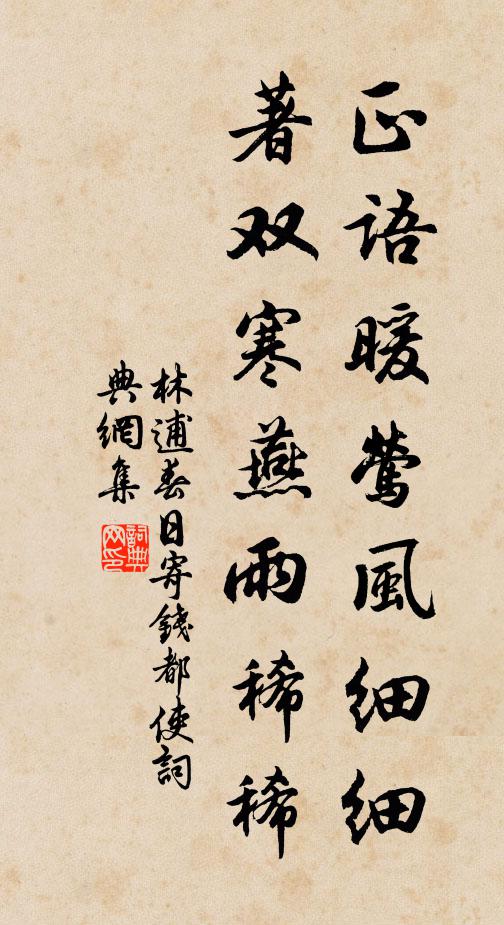 正语暖莺風细细
著双寒燕雨稀稀
林逋春日寄钱都使詞
典網集
詞典网印